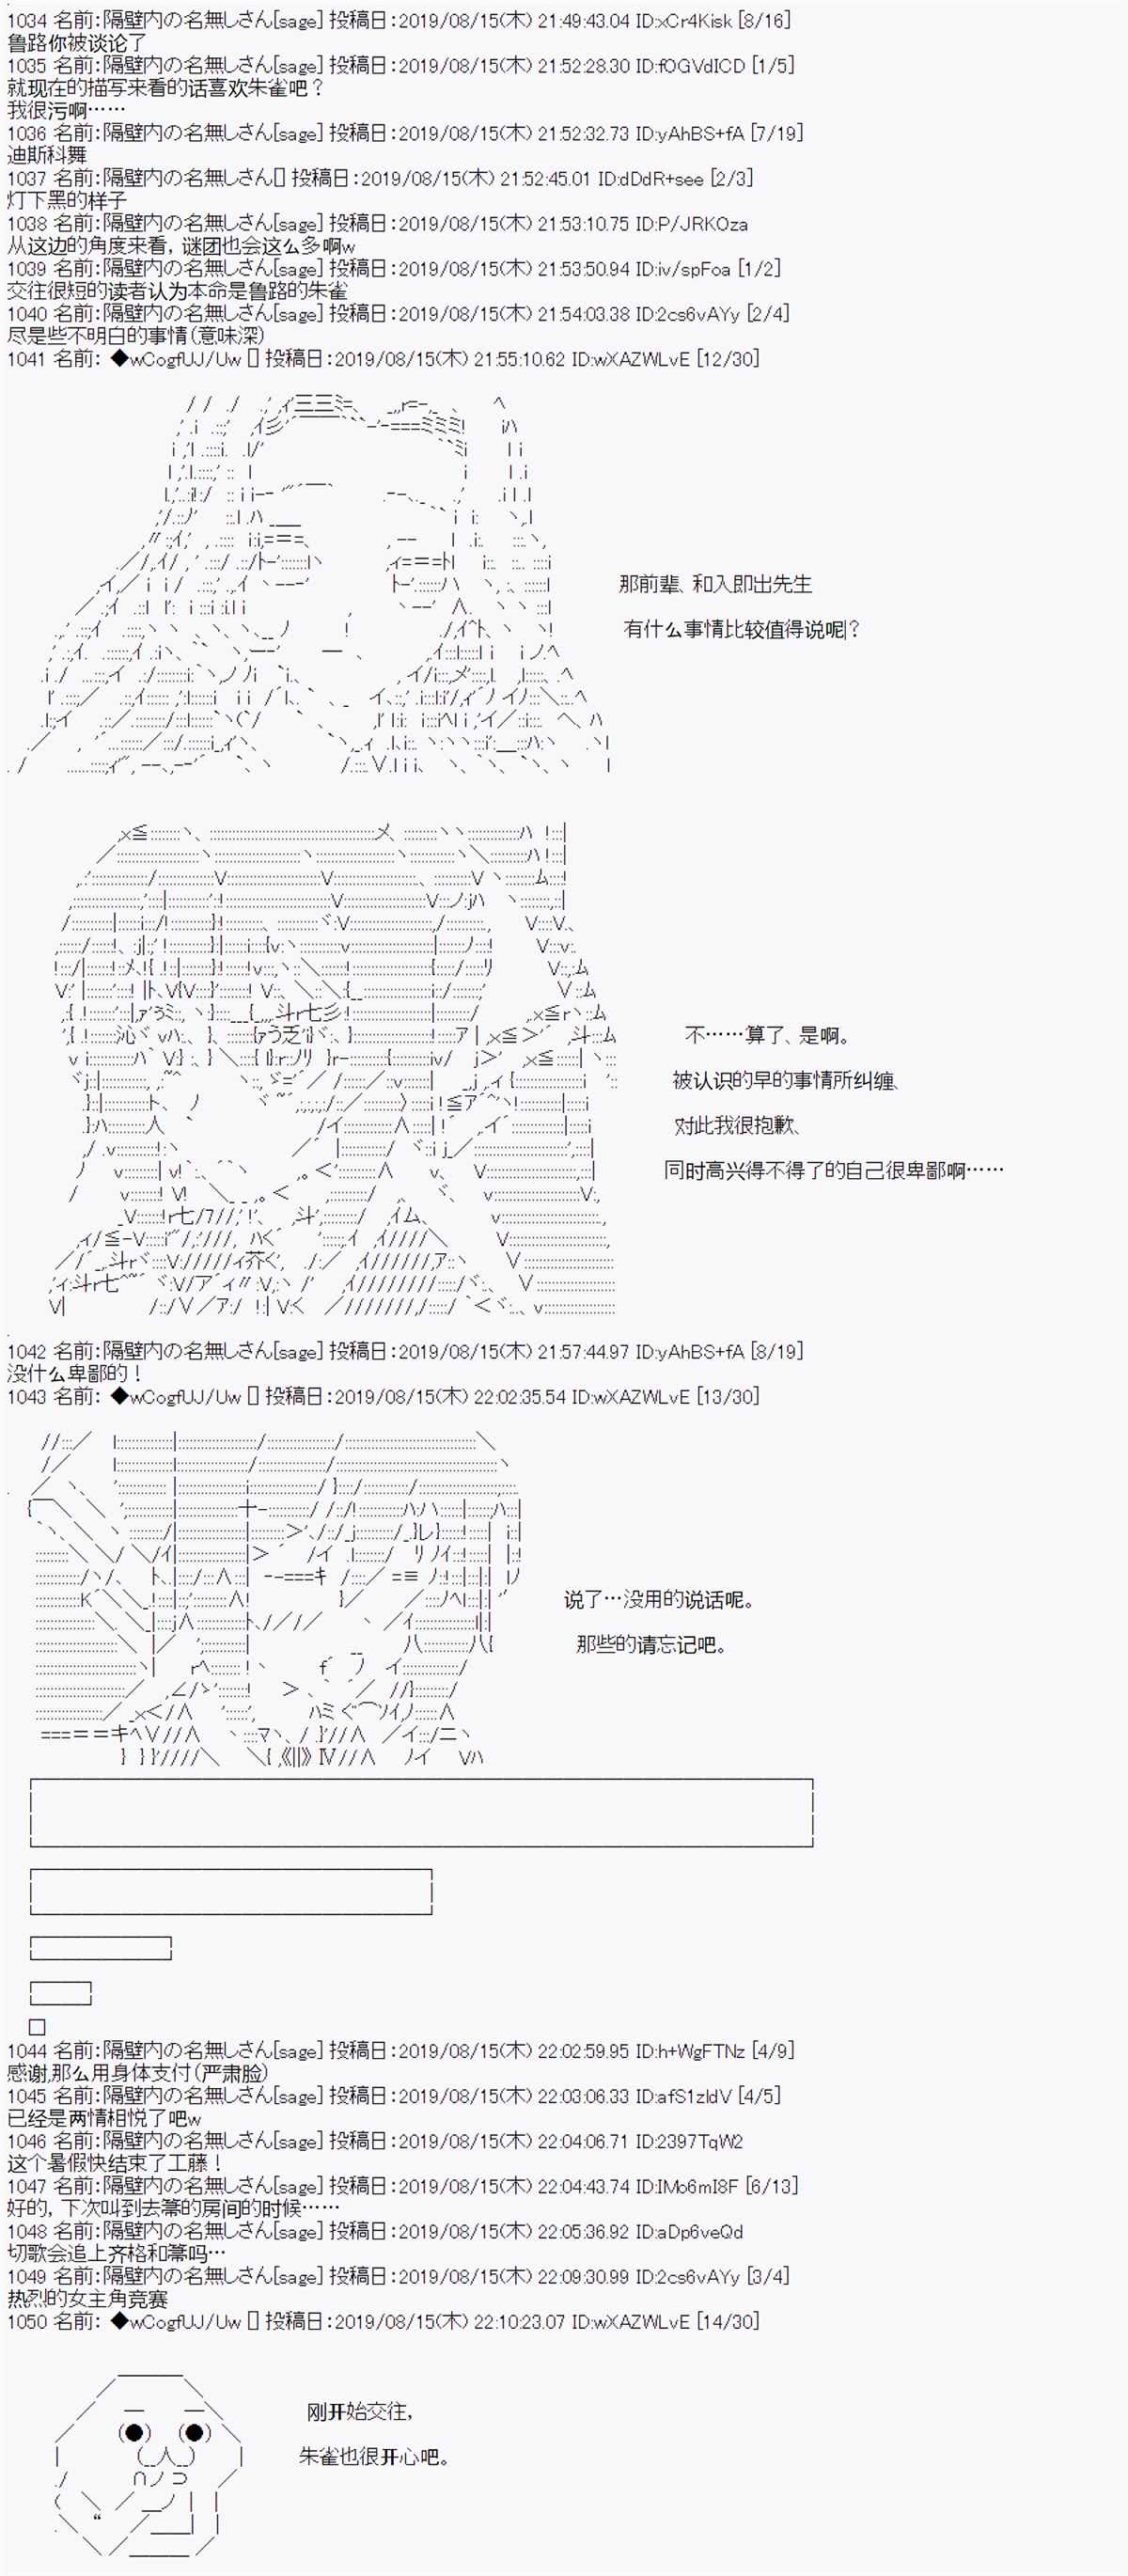 1034 名前:隔壁内の名無しさん[sage] 投稿日:2019/08/15(木) 21:49:43.04 ID:xCr4Kisk [8/16]
鲁路你被谈论了
1035 名前:隔壁内の名無しさん[sage] 投稿日:2019/08/15(木) 21:52:28.30 ID:f0GVdICD [1/5]
就现在的描写来看的话喜欢朱雀吧？
我很污啊……
1036 名前:隔壁内の名無しさん[sage] 投稿日:2019/08/15(木) 21:52:32.73 ID:yAhBS+fA [7/19]
迪斯科舞
1037 名前:隔壁内の名無しさん[] 投稿日:2019/08/15(木) 21:52:45.01 ID:dDdR+see [2/3]
灯下黑的样子
1038 名前:隔壁内の名無しさん[sage] 投稿日:2019/08/15(木) 21:53:10.75 ID:P/JRKOza
从这边的角度来看, 谜团也会这么多啊w
1039 名前:隔壁内の名無しさん[sage] 投稿日:2019/08/15(木) 21:53:50.94 ID:iv/spFoa [1/2]
交往很短的读者认为本命是鲁路的朱雀
1040 名前:隔壁内の名無しさん[sage] 投稿日:2019/08/15(木) 21:54:03.38 ID:2cs6vAYy [2/4]
尽是些不明白的事情(意味深)
1041 名前: ◆wCogfUJ/Uw [] 投稿日:2019/08/15(木) 21:55:10.62 ID:wXAZWLvE [12/30]
那前辈、和入即出先生
有什么事情比较值得说呢?
不……算了、是啊。
被认识的早的事情所纠缠、
对此我很抱歉、
同时高兴得不得了的自己很卑鄙啊……
1042 名前:隔壁内の名無しさん[sage] 投稿日:2019/08/15(木) 21:57:44.97 ID:yAhBS+fA [8/19]
没什么卑鄙的！
1043 名前: ◆wCogfUJ/Uw [] 投稿日:2019/08/15(木) 22:02:35.54 ID:wXAZWLvE [13/30]
说了…没用的说话呢。
那些的请忘记吧。
1044 名前:隔壁内の名無しさん[sage] 投稿日:2019/08/15(木) 22:02:59.95 ID:h+WgFTNz [4/9]
感谢,那么用身体支付(严肃脸)
1045 名前:隔壁内の名無しさん[sage] 投稿日:2019/08/15(木) 22:03:06.33 ID:afS1zldV [4/5]
已经是两情相悦了吧w
1046 名前:隔壁内の名無しさん[sage] 投稿日:2019/08/15(木) 22:04:06.71 ID:2397TqW2
这个暑假快结束了工藤！
1047 名前:隔壁内の名無しさん[sage] 投稿日:2019/08/15(木) 22:04:43.74 ID:IMo6mI8F [6/13]
好的, 下次叫到去箒的房间的时候……
1048 名前:隔壁内の名無しさん[sage] 投稿日:2019/08/15(木) 22:05:36.92 ID:aDp6veQd
切歌会追上齐格和箒吗…
1049 名前:隔壁内の名無しさん[sage] 投稿日:2019/08/15(木) 22:09:30.99 ID:2cs6vAYy [3/4]
热烈的女主角竞赛
1050 名前: ◆wCogfUJ/Uw [] 投稿日:2019/08/15(木) 22:10:23.07 ID:wXAZWLvE [14/30]
刚开始交往,
朱雀也很开心吧。